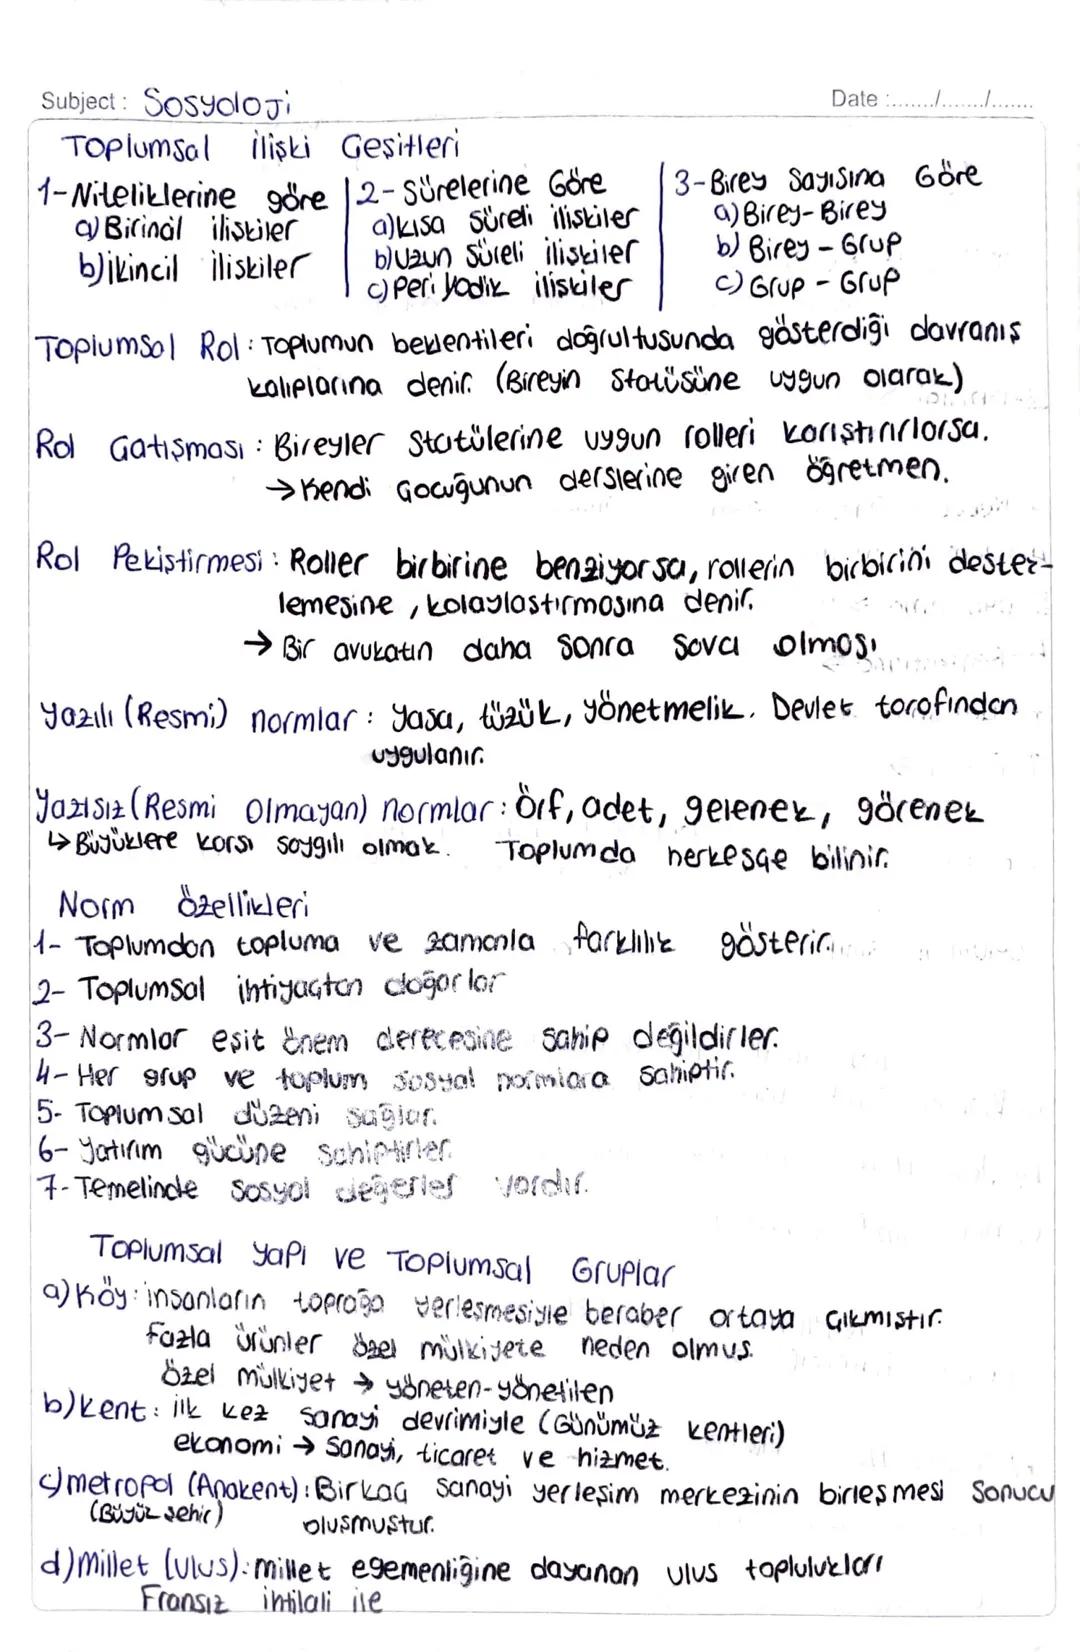 Subject: Sosyoloji Date :......./......./.......
Toplumsal ilişki Çeşitleri
1-Niteliklerine göre
a) Birincil ilişkiler
b) İkincil ilişkiler
2- Sürelerine Göre
a) Kısa süreli ilişkiler
b) Uzun Süreli ilişkiler
c) Periyodik ilişkiler
3-Birey Sayısına Göre
a) Birey-Birey
b) Birey - Grup
c) Grup - Grup
Toplumsal Rol: Toplumun beklentileri doğrultusunda gösterdiği davranış
kalıplarına denir. (Bireyin Statüsüne uygun olarak)
Rol Çatışması : Bireyler Statülerine uygun rolleri karıştırırlarsa.
→ Kendi Çocuğunun derslerine giren öğretmen.
Rol Pekiştirmesi : Roller birbirine benziyorsa, rollerin birbirini destek-
lemesine, kolaylaştırmasına denir.
→ Bir avukatın daha sonra Savcı olması
Yazılı (Resmi) normlar : Yasa, tüzük, yönetmelik. Devlet tarafından
uygulanır.
Yazısız (Resmi Olmayan) normlar : Örf, adet, gelenek, görenek
↳ Büyüklere karşı saygılı olmak. Toplumda herkesçe bilinir.
Norm Özellikleri
1- Toplumdan topluma ve zamanla farklılık gösterir.
2- Toplumsal ihtiyaçtan doğarlar
3- Normlar eşit önem derecesine sahip değildirler.
4- Her grup ve toplum sosyal normlara sahiptir.
5- Toplumsal düzeni sağlar.
6- Yatırım gücüne sahiptirler.
7- Temelinde sosyal değerler vardır.
Toplumsal yapı ve Toplumsal Gruplar
a) Köy: insanların toprağa yerleşmesiyle beraber ortaya çıkmıştır.
Fazla ürünler özel mülkiyete neden olmuş.
özel mülkiyet → yöneten-yönetilen
b) Kent: ilk kez sanayi devrimiyle (Günümüz kentleri)
ekonomi → Sanayi, ticaret ve hizmet.
c) metropol (Anakent): Birkaç sanayi yerleşim merkezinin birleşmesi Sonucu
(Büyük şehir) oluşmuştur.
d) Millet (Ulus): millet egemenliğine dayanan ulus toplulukları
Fransız ihtilali ile